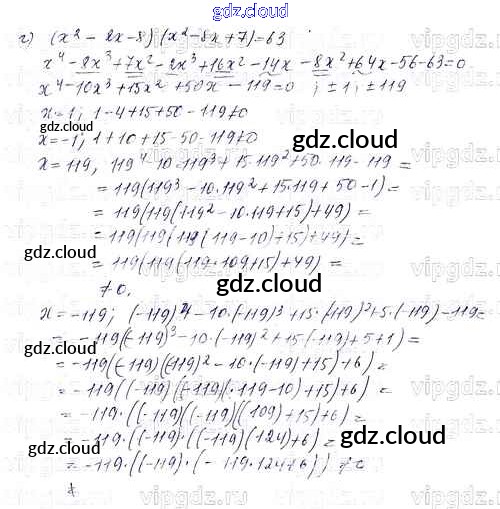 gdz.cloud
г) (x² - 2x - 8)(x² - 8x + 7) = 63
x⁴ - 8x³ + 7x² - 2x³ + 16x² - 14x - 8x² + 64x - 56 - 63 = 0
x⁴ - 10x³ + 15x² + 50x - 119 = 0 ; ± 1; ± 119
x = 1; 1 - 4 + 15 + 50 - 119 ≠ 0
x = -1; 1 + 10 + 15 - 50 - 119 ≠ 0
gdz.cloud
x = 119, 119⁴ - 10·119³ + 15·119² + 50·119 - 119 =
= 119(119³ - 10·119² + 15·119 + 50 - 1) =
gdz.cloud
= 119(119(119² - 10·119 + 15) + 49) =
= 119(119(119(119 - 10) + 15) + 49) =
gdz.cloud
= 119(119(119·109 + 15) + 49) =
≠ 0.
gdz.cloud
x = -119; (-119)⁴ - 10·(-119)³ + 15·(119)² + 5·(-119) - 119 =
= -119(-119)³ - 10·(-119)² + 15(-119) + 5 + 1) =
gdz.cloud
= -119((-119)(-119)² - 10·(-119) + 15) + 6) =
= -119((-119)(-119)(-119 - 10) + 15) + 6) =
= -119·((-119)((-119)((109) + 15) + 6) =
gdz.cloud
gdz.cloud
= -119·((-119)·((-119)(124) + 6) =
= -119·((-119)·(-119·124 + 6)) ≠ 0
vipgdz.ru